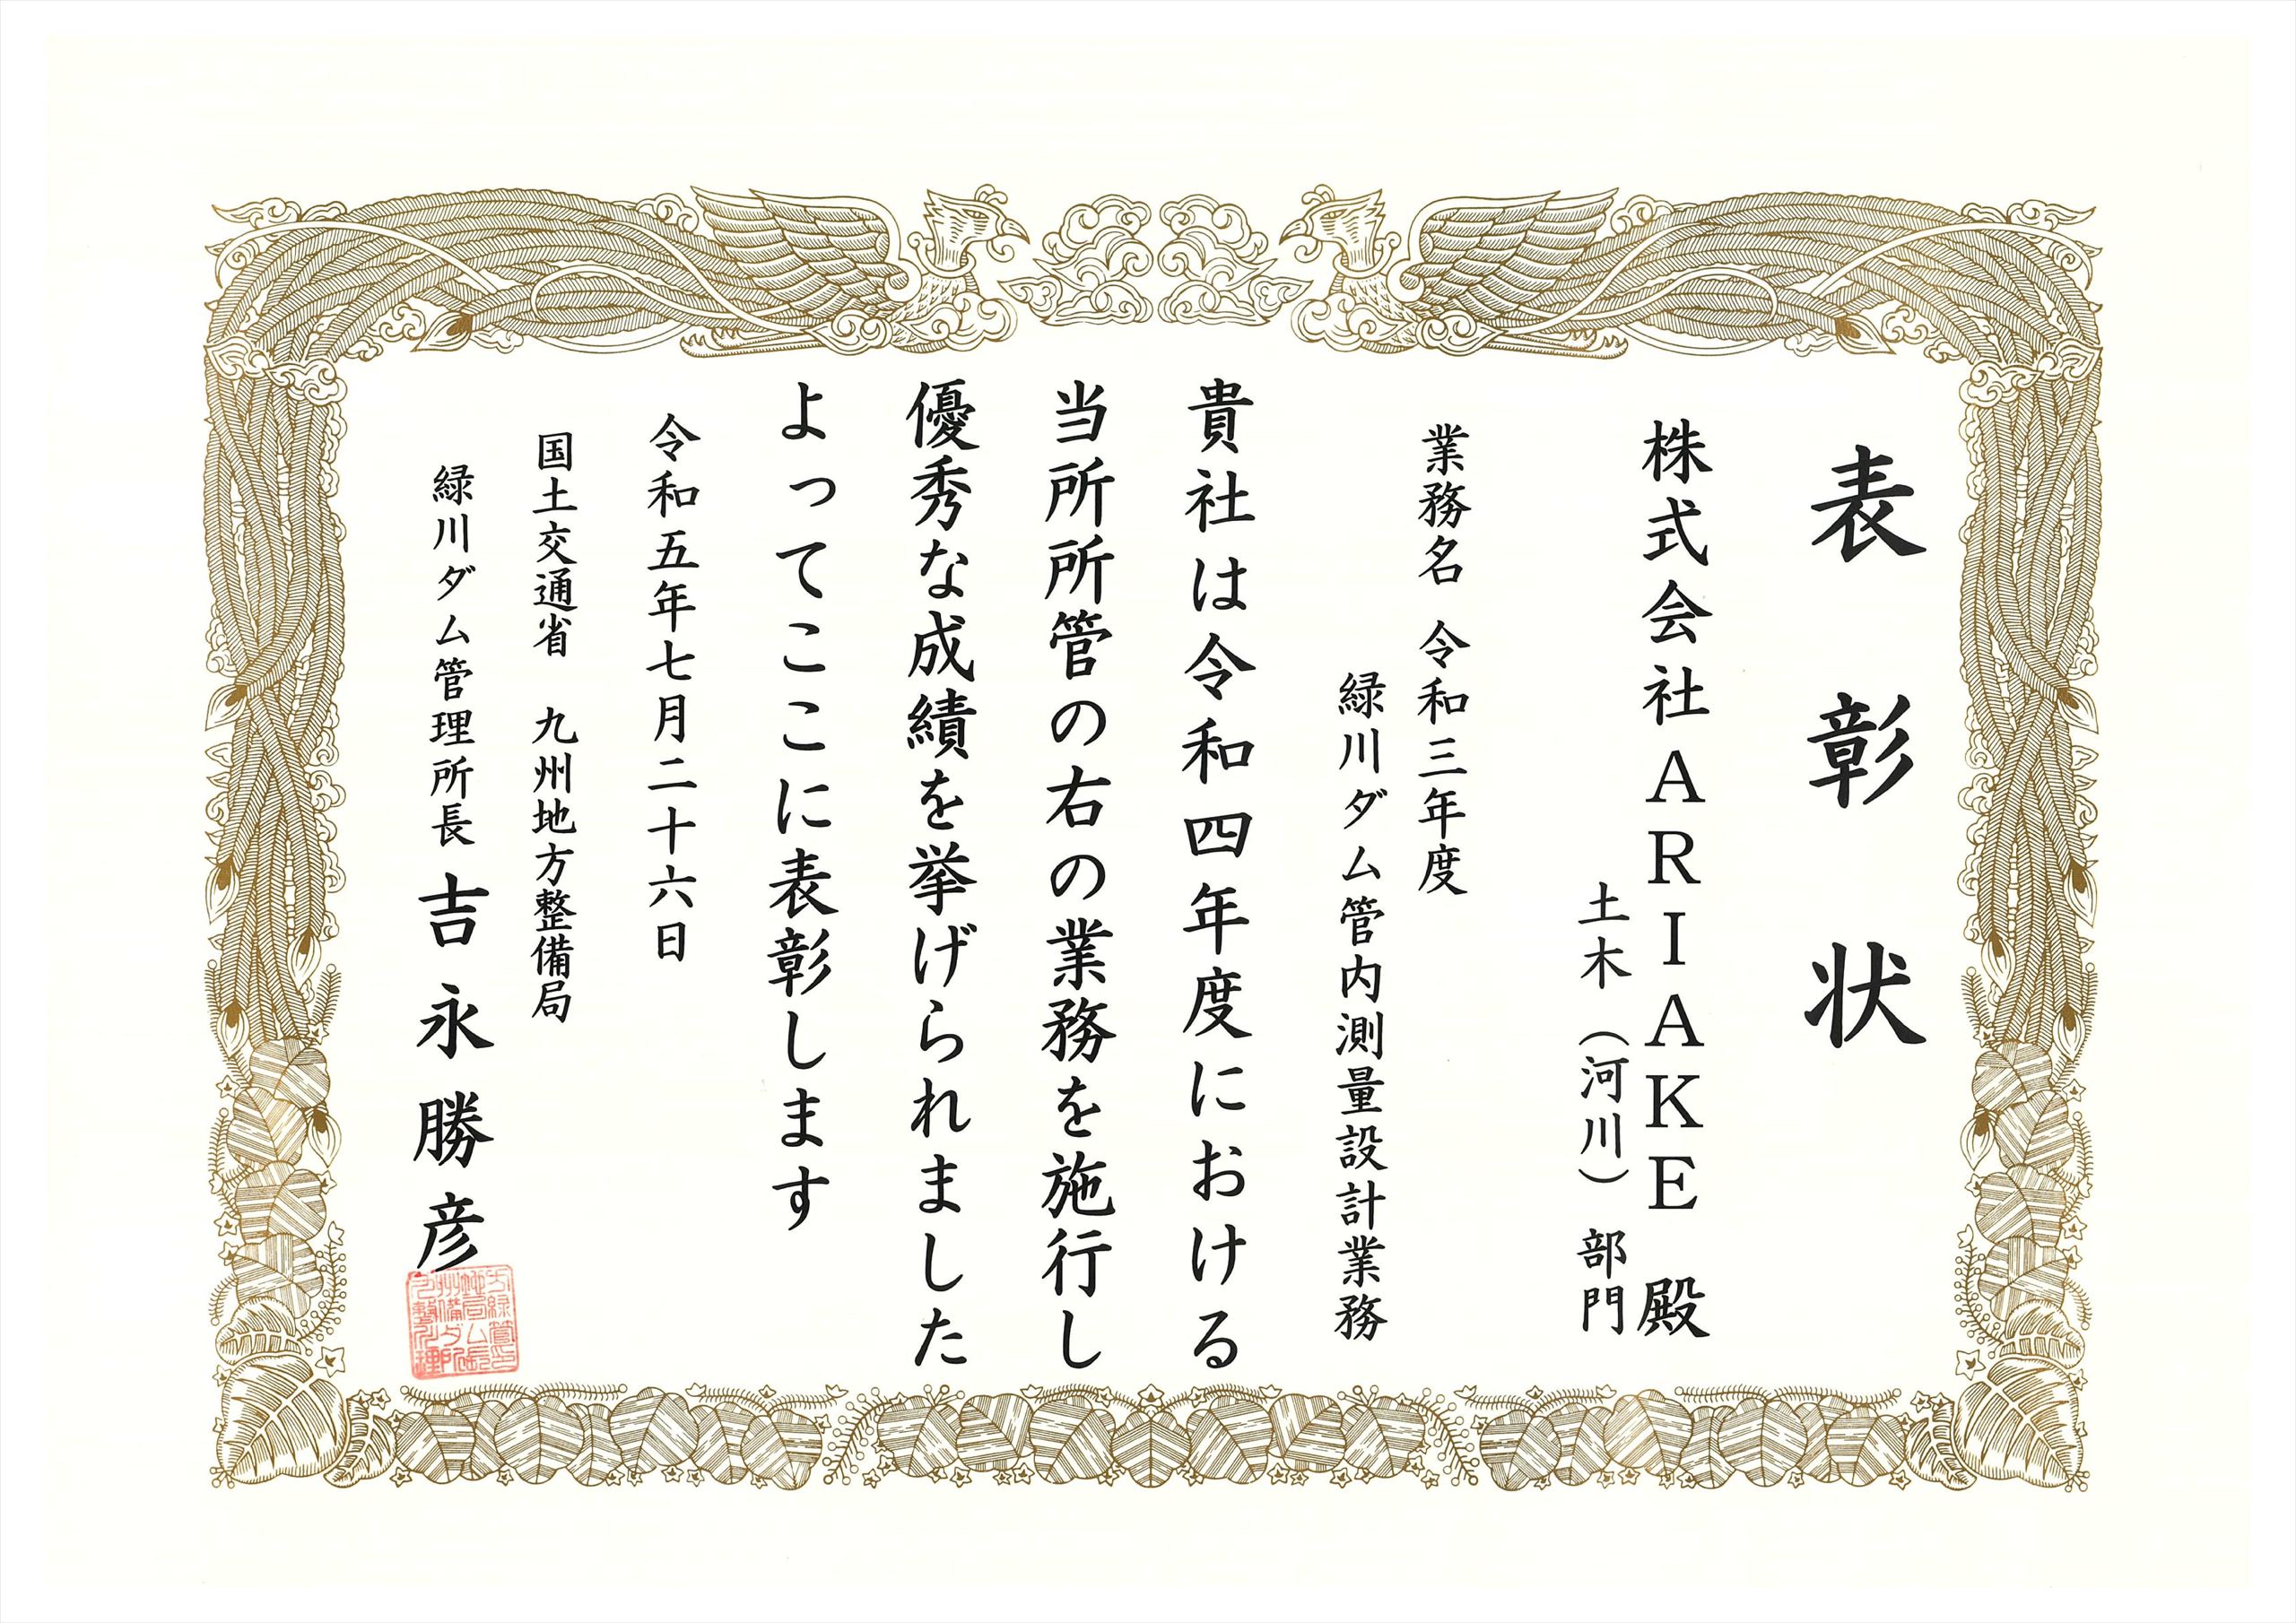 表彰状
株式会社ARIAKE 殿
土木（河川）部門
業務名 令和三年度
緑川ダム管内測量設計業務
貴社は令和四年度における
当所所管の右の業務を施行し
優秀な成績を挙げられました
よってここに表彰します
令和五年七月二十六日
国土交通省 九州地方整備局
緑川ダム管理所長 吉永勝彦